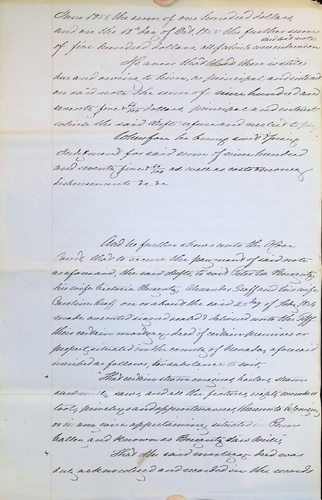 June 1855 the sum of one hundred dollars
and on the 18th day of Oct. 1855 the further sum
of five hundred dollars, all
He avers that there is still
due and owing to him, as principal and interest
on said note the sum of nine hundred and
seventy five dollars, principal and interest
which the said Defts refuse and neglect to pay
Wherefore he brings suit & prays
Judgment for said sum of nine hundred
and seventy five as well as costs
disbursements &c &c
And he further shows unto the Hon
Court that to secure the payment of said note
as aforesaid, the said defts, to wit Peter
his wife Victoria Alexander Goff and his wife
Caroline Goff on or about the said 22 day of Feby 1854
made executed signed sealed & delivered unto the Plff
their certain mortgage deed of certain premises or
property situated in the county of Nevada, aforesaid
described as follows, in substance to wit,
"That certain steam engine, boilers, steam
saw mill, saws, and all the fixtures,
tools, privileges and appurtenances, thereunto belonging
or in any wise appertaining, situated in Penn
Valley and known as Saw Mill"
That the said mortgage deed was
duly acknowledged and recorded in the records